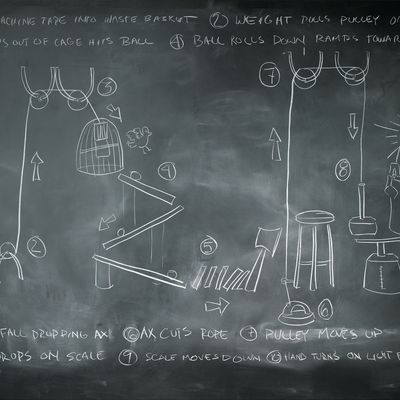 ACHINE TAPE INTO WASTE BASKET ② WEIGHT PULLS PULLEY
S OUT OF CAGE HITS BALL ④ BALL ROLLS DOWN RAMPS TOWAR
⑦
③
④
8
2
5
6
FALL DROPPING AX ⑥ AX CUTS ROPE ⑦ PULLEY MOVES UP
DROPS ON SCALE ⑨ SCALE MOVES DOWN ⑩ HAND TURNS ON LIGHT